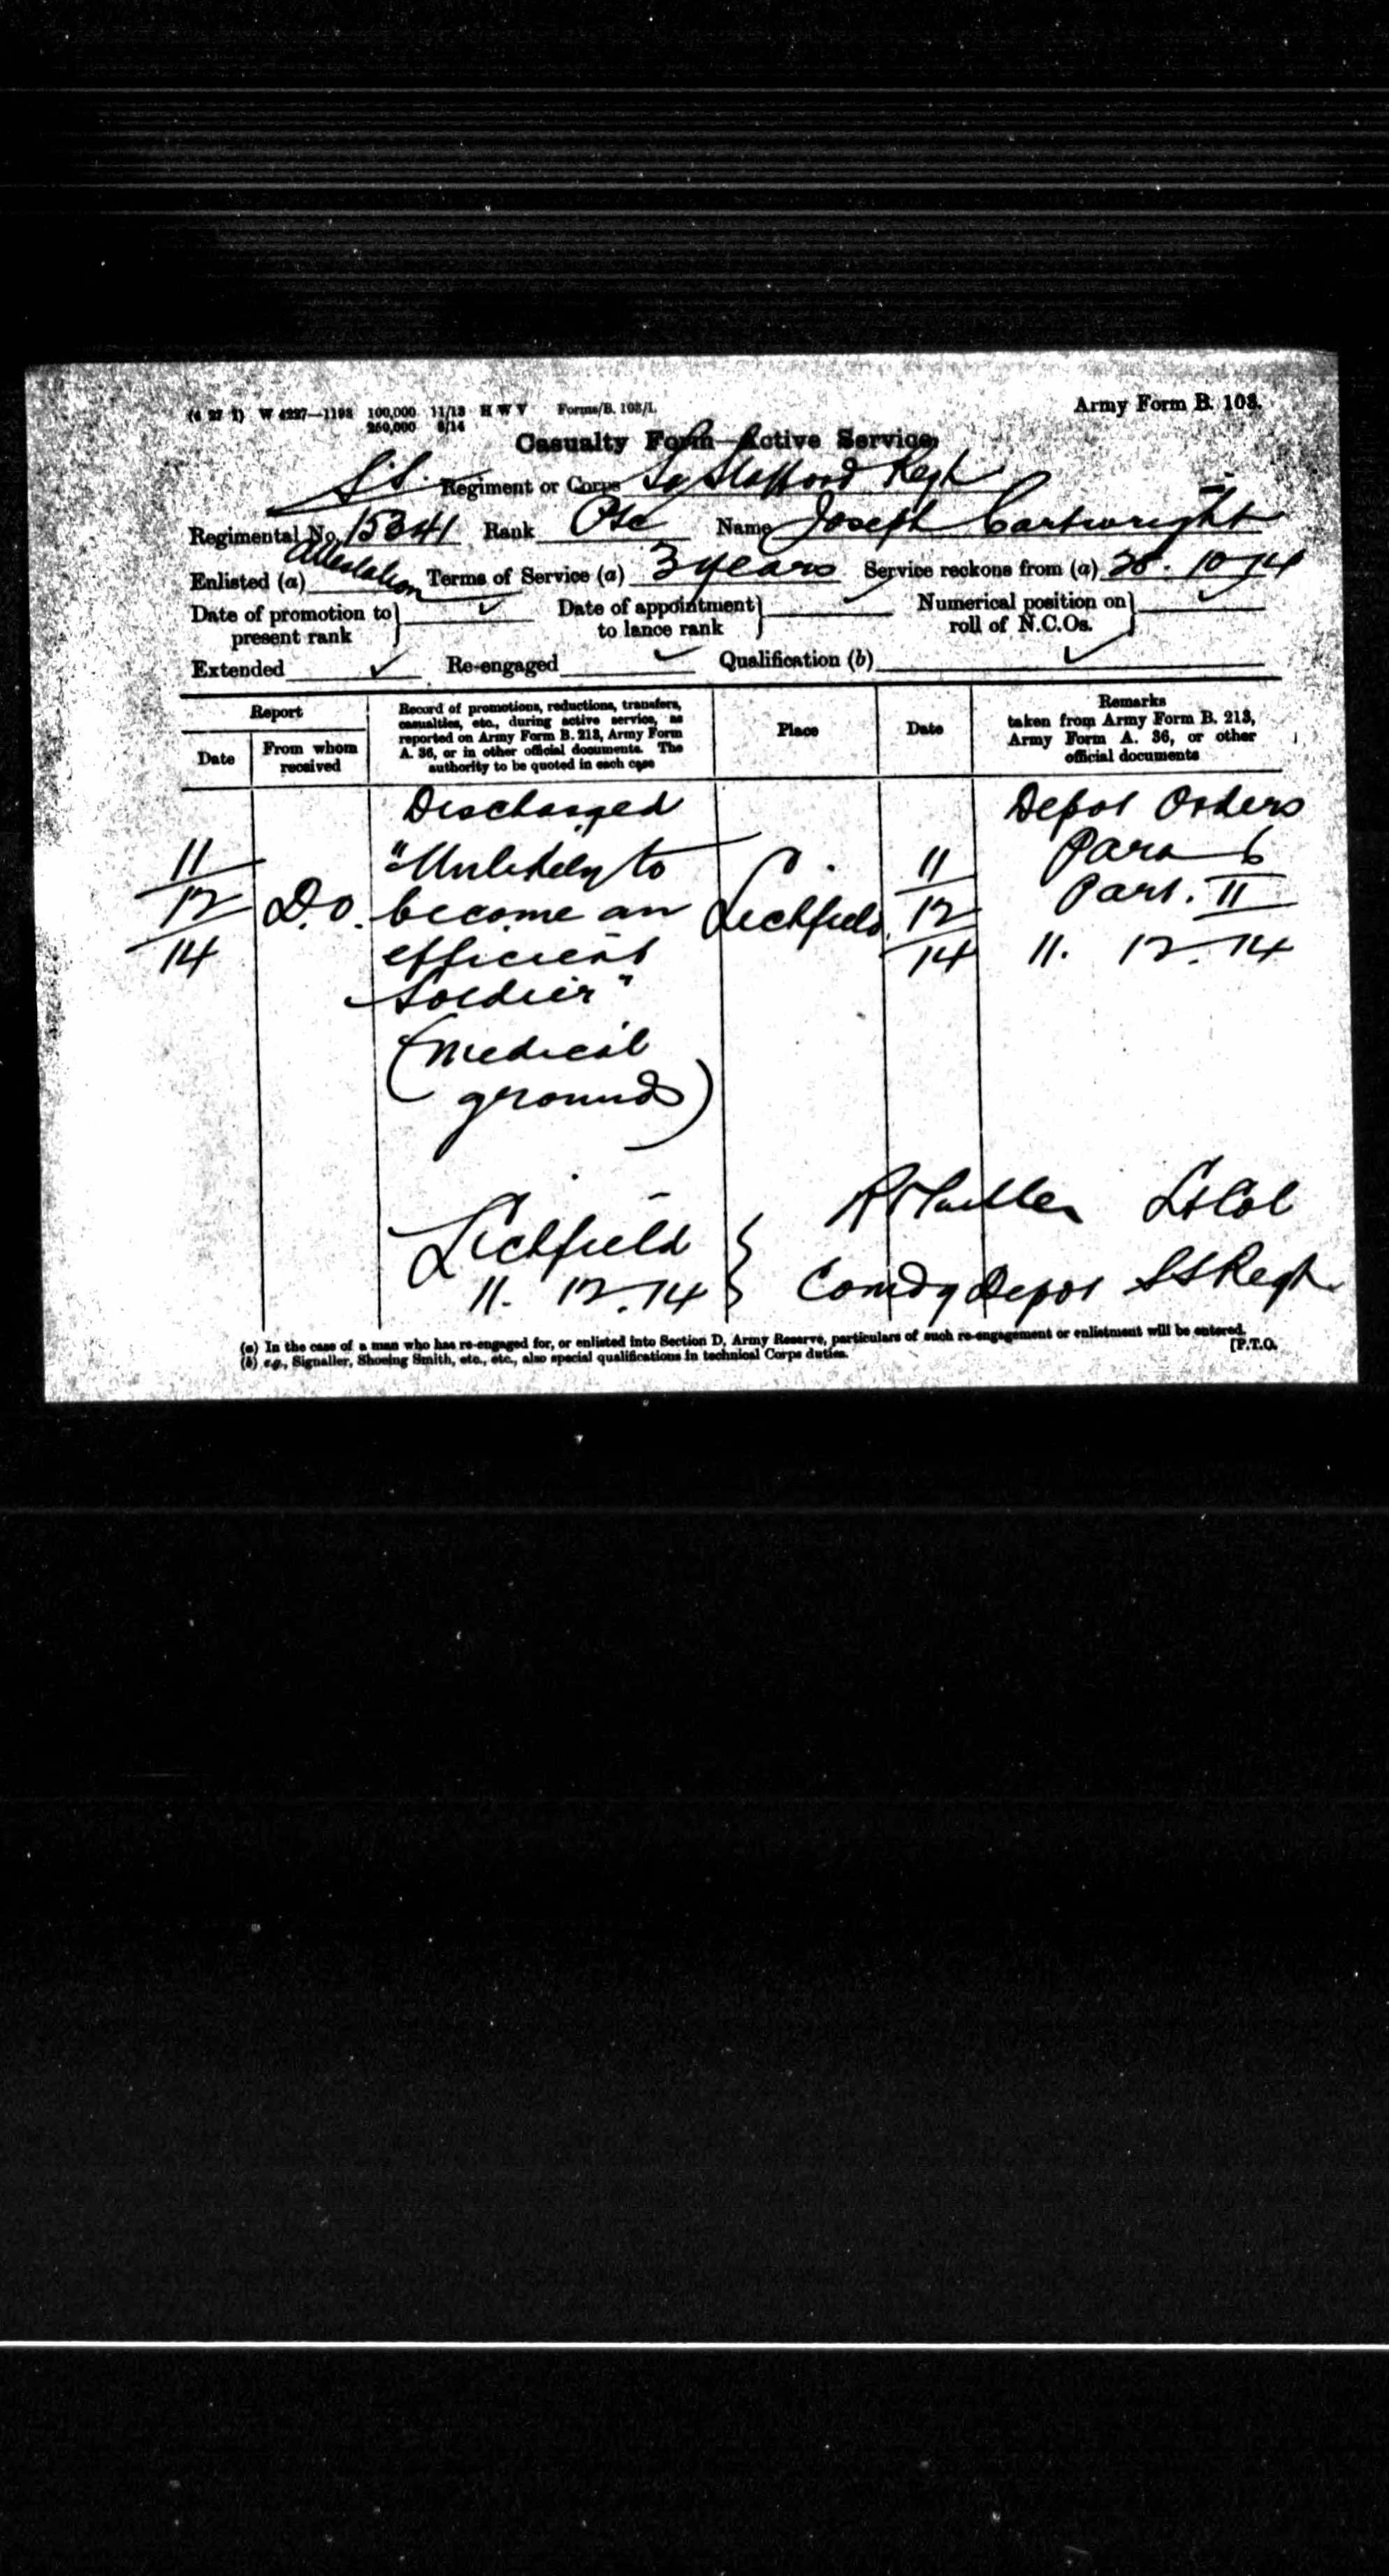 (6 27 1) W 4227—1198 100,000 11/13 H W V Forms/B. 103/1.
250,000 8/14
Army Form B. 103.
Casualty Form—Active Service.
S.S. Regiment or Corps Stafford Regt
Regimental No. 15341 Rank Pte Name Joseph Cartwright
Enlisted (a) Attestation Terms of Service (a) 3 years Service reckons from (a) 10 14
Date of promotion to present rank ✓ Date of appointment to lance rank Numerical position on roll of N.C.Os. ✓
Extended ✓ Re-engaged ✓ Qualification (b) ✓
Report
Date
From whom received
Record of promotions, reductions, transfers,
casualties, etc., during active service, as
reported on Army Form B. 213, Army Form
A. 36, or in other official documents. The
authority to be quoted in each case
Place
Date
Remarks
taken from Army Form B. 213,
Army Form A. 36, or other
official documents
Discharged Depot Orders
11 "Unlikely to 11 Para 6
12 D.O. become an Lichfield 12 Part. II
14 efficient 14 11. 12. 14
soldier"
(medical
grounds)
Lichfield Lt Col
11. 12. 14 Comdg Depot S S Regt
(a) In the case of a man who has re-engaged for, or enlisted into Section D, Army Reserve, particulars of such re-engagement or enlistment will be entered.
(b) e.g., Signaller, Shoeing Smith, etc., etc., also special qualifications in technical Corps duties.
[P.T.O.